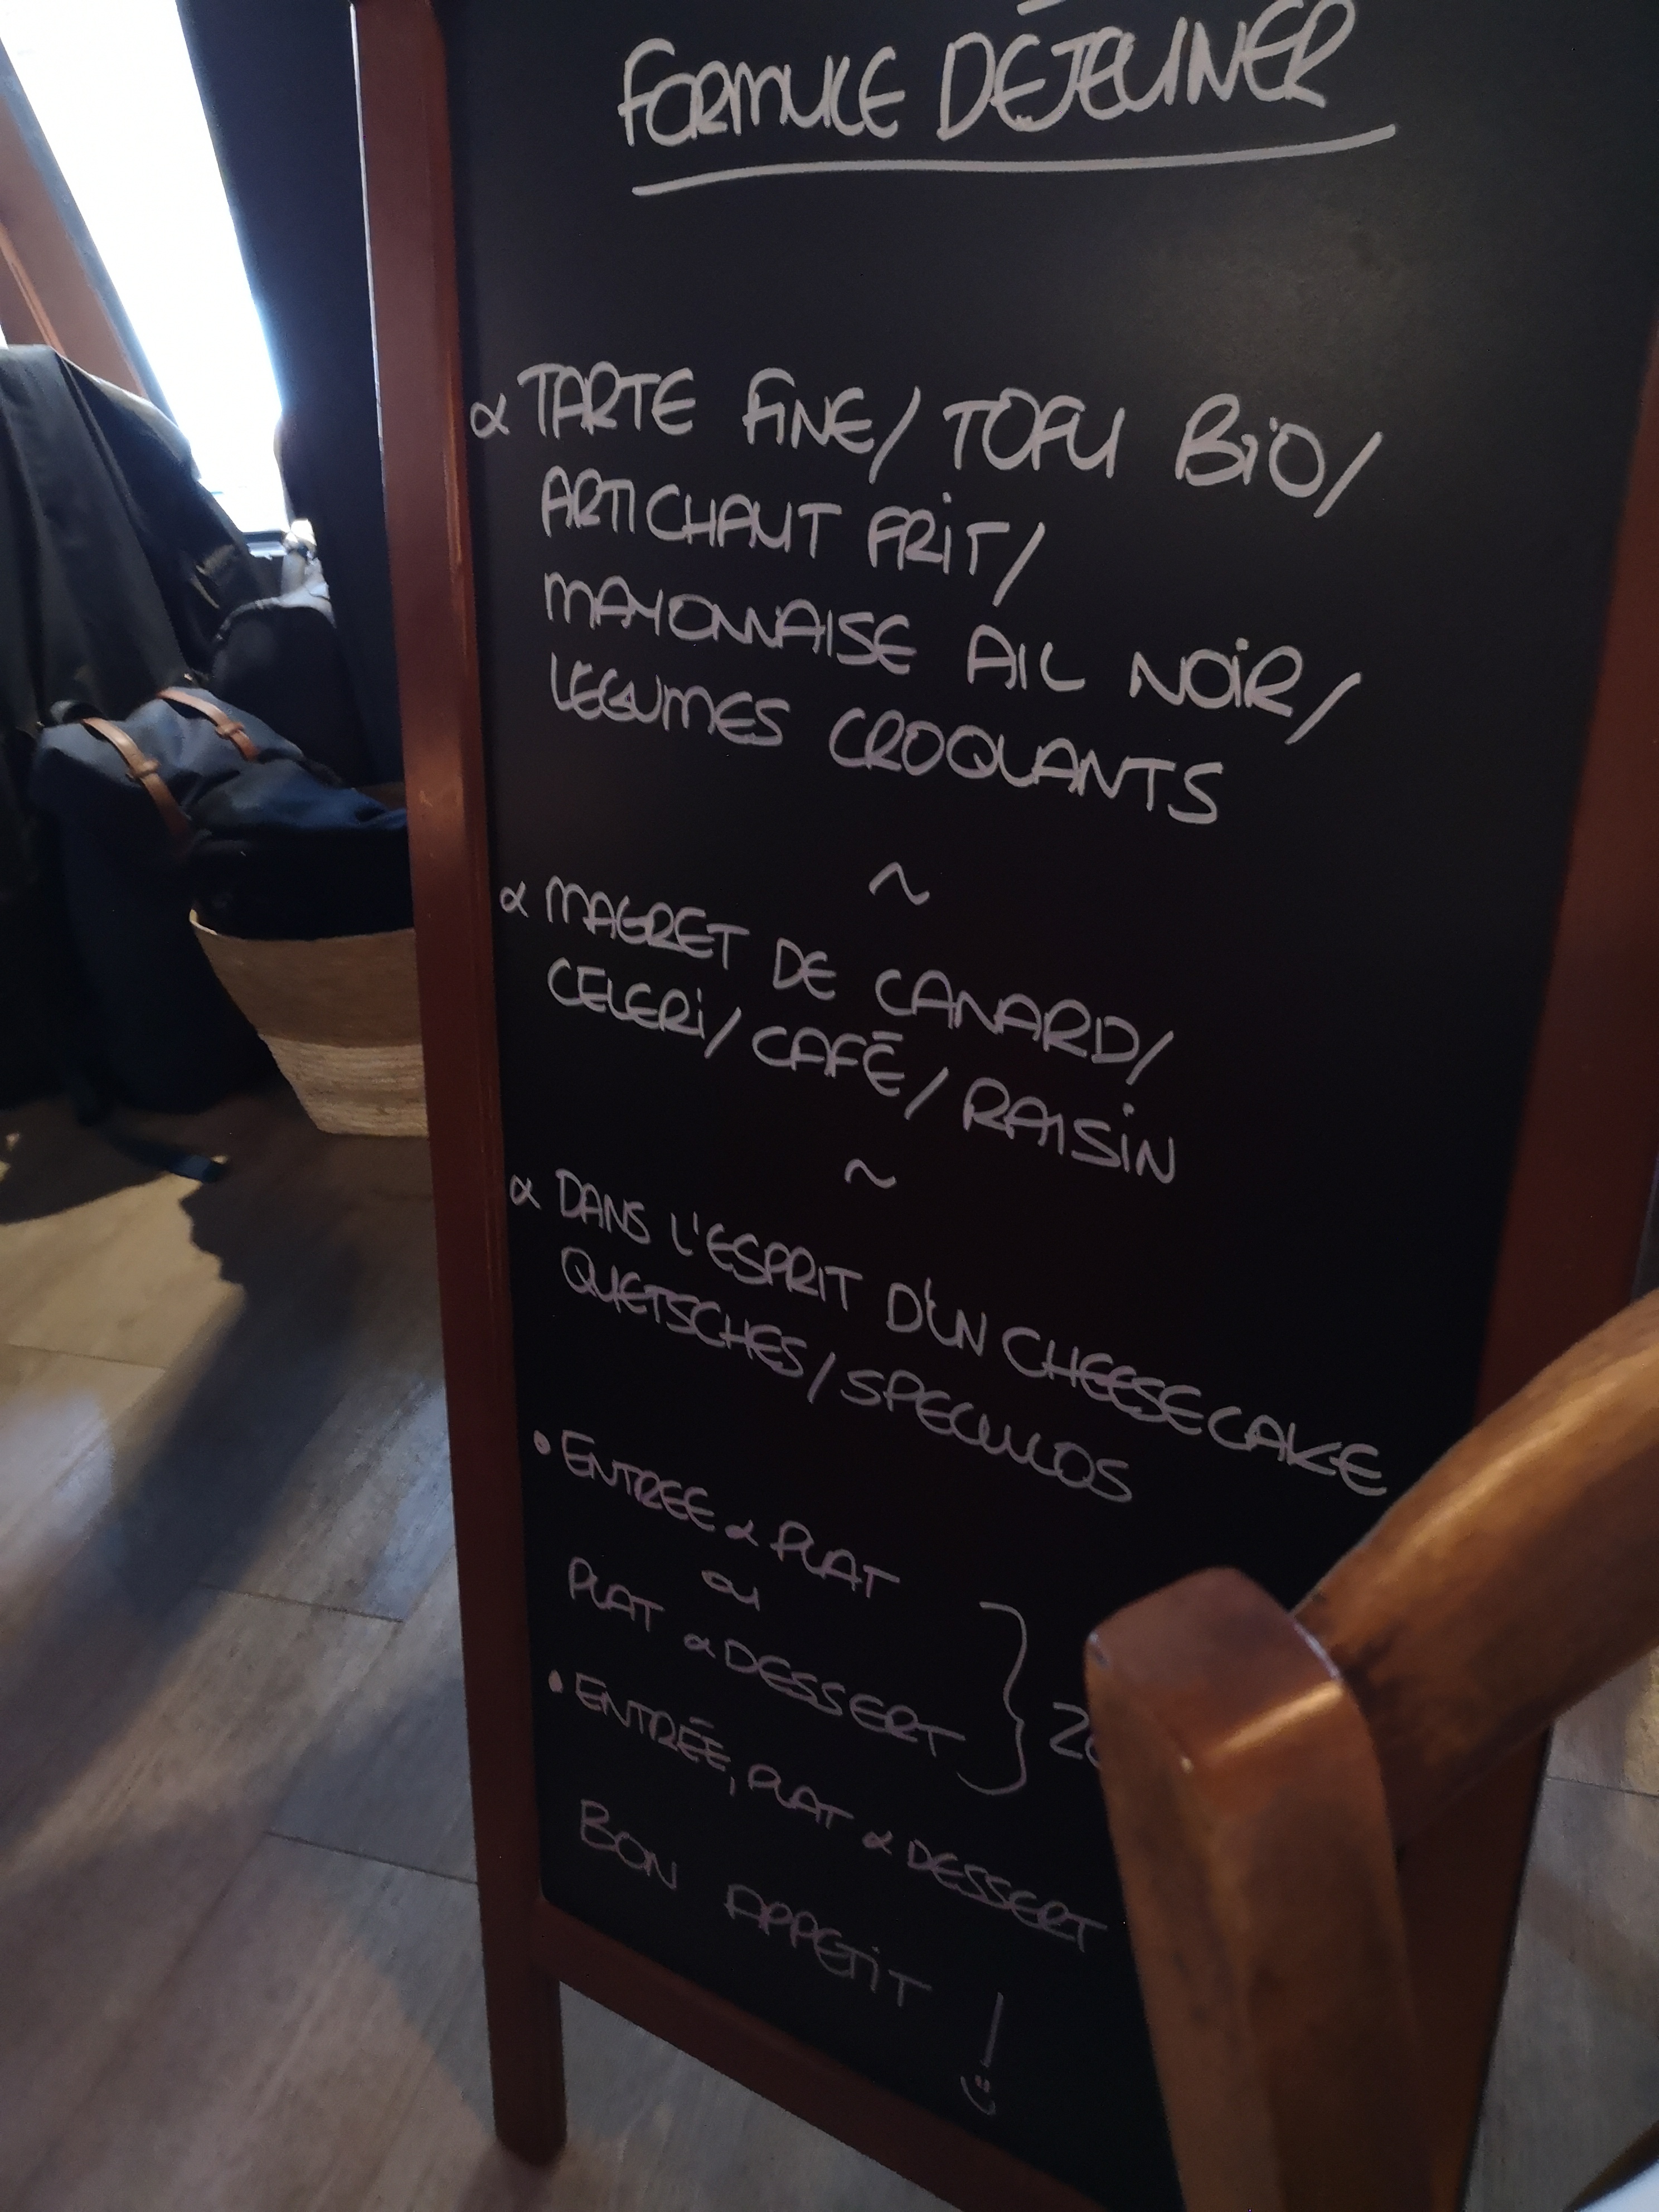 FORMULE DÉJEUNER
α TARTE FINE/ TOFU BIO/
ARTICHAUT FRIT/
MAYONNAISE AIL NOIR/
LEGUMES CROQUANTS
~
α MAGRET DE CANARD/
CELERI/ CAFÉ/ RAISIN
~
α DANS L'ESPRIT D'UN CHEESECAKE
QUETSCHES/ SPECULOS
• ENTREE α PLAT
ou
PLAT α DESSERT
• ENTRÉE, PLAT α DESSERT
BON APPETIT !